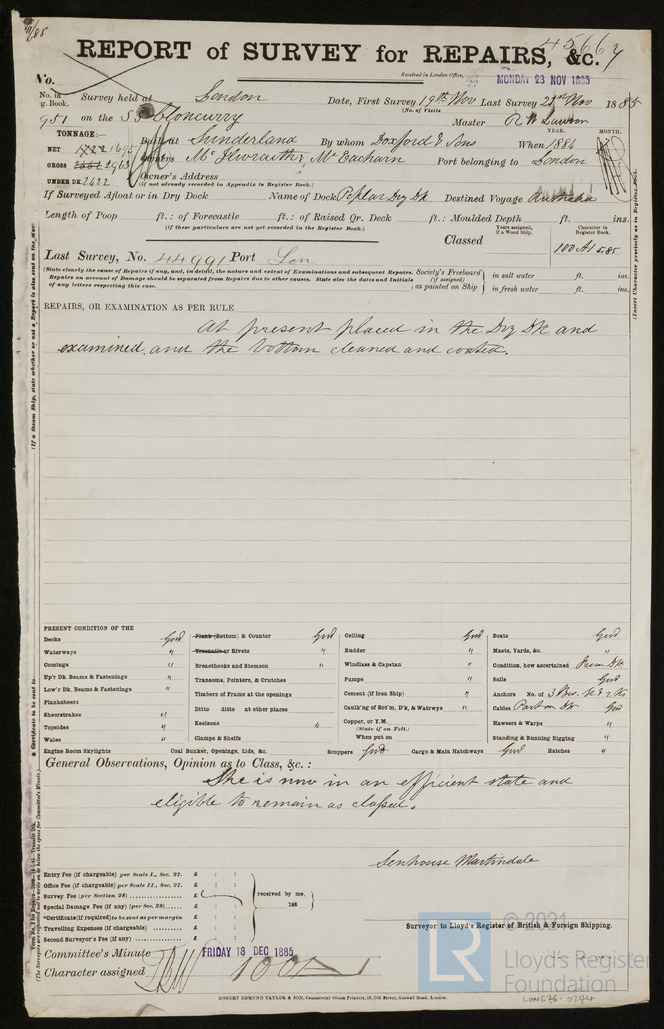 REPORT of SURVEY for REPAIRS, &c. 45667
Received in London Office, MONDAY 23 NOV 1885
No.
No. in
g. Book.
951
Survey held at London Date, First Survey 19th Nov Last Survey 21st Nov 1885
(No. of Visits
on the SS Cloncurry Master R W Dawson
TONNAGE:— Built at Sunderland By whom Doxford & Sons When 1884
YEAR. MONTH.
NET 1722 1695
GROSS 2552 1963
UNDER DK 2422
Owners McIlwraith, McEacharn Port belonging to London
Owner's Address
(if not already recorded in Appendix to Register Book.)
If Surveyed Afloat or in Dry Dock Name of Dock Poplar Dry Dk Destined Voyage Australia
Length of Poop ft.: of Forecastle ft.: of Raised Qr. Deck ft.: Moulded Depth ft. ins.
(If these particulars are not yet recorded in the Register Book.)
Classed
Years assigned, if a Wood Ship.
Character in Register Book.
100 A1 5.85
Last Survey, No. 44991 Port Lon
(State clearly the cause of Repairs if any, and, in detail, the nature and extent of Examinations and subsequent Repairs.
Repairs on account of Damage should be separated from Repairs due to other causes. State also the dates and Initials
of any letters respecting this case.
Society's Freeboard
(if assigned)
as painted on Ship
in salt water ft. ins.
in fresh water ft. ins.
REPAIRS, OR EXAMINATION AS PER RULE
At present placed in the Dry Dk and
examined, and the bottom cleaned and coated.
PRESENT CONDITION OF THE
Decks Good
Waterways "
Comings "
Up'r Dk. Beams & Fastenings "
Low'r Dk. Beams & Fastenings "
Planksheers
Sheerstrakes "
Topsides "
Wales "
Engine Room Skylights
Plank (Bottom) & Counter Good
Treenails or Rivets "
Breasthooks and Stemson "
Transoms, Pointers, & Crutches
Timbers of the Frame at the openings
Ditto ditto at other places
Keelsons "
Clamps & Shelfs
Coal Bunker, Openings, Lids, &c.
Ceiling Good
Rudder "
Windlass & Capstan "
Pumps "
Cement (if Iron Ship) "
Caulk'ng of Bot'm, D'k, & Watrwys "
Copper, or Y.M.
(State if on Felt.)
When put on
Scuppers Good Cargo & Main Hatchways Good
Boats Good
Masts, Yards, &c. "
Condition, how ascertained From Dk
Sails Good
Anchors No. of 3 Bos. 1 St & 2 Ks
Cables Part on Dk Good
Hawsers & Warps "
Standing & Running Rigging "
Hatches "
General Observations, Opinion as to Class, &c.:
She is now in an efficient state and
eligible to remain as classed.
Senhouse Martindale
Surveyor to Lloyd's Register of British & Foreign Shipping.
Entry Fee (if chargeable) per Scale I., Sec. 27. £ : :
Office Fee (if chargeable) per Scale II., Sec. 27. £ : :
Survey Fee (per Section 28) £ : :
Special Damage Fee (if any) (per Sec. 28) £ : :
*Certificate (if required) to be sent as per margin £ : :
Travelling Expenses (if chargeable) £ : :
Second Surveyor's Fee (if any) £ : :
received by me,
188
Committee's Minute FRIDAY 18 DEC 1885
Character assigned 100 A1
ROBERT EDMUND TAYLOR & SON, Commercial Steam Printers, 19, Old Street, Goswell Road, London.
(If a Steam Ship, state whether or not a Report is also sent on the war:
(Insert Character precisely as in Register Book.
* Certificate to be sent to
LR
© 2021
Lloyd's Register
Foundation
LON676-0244